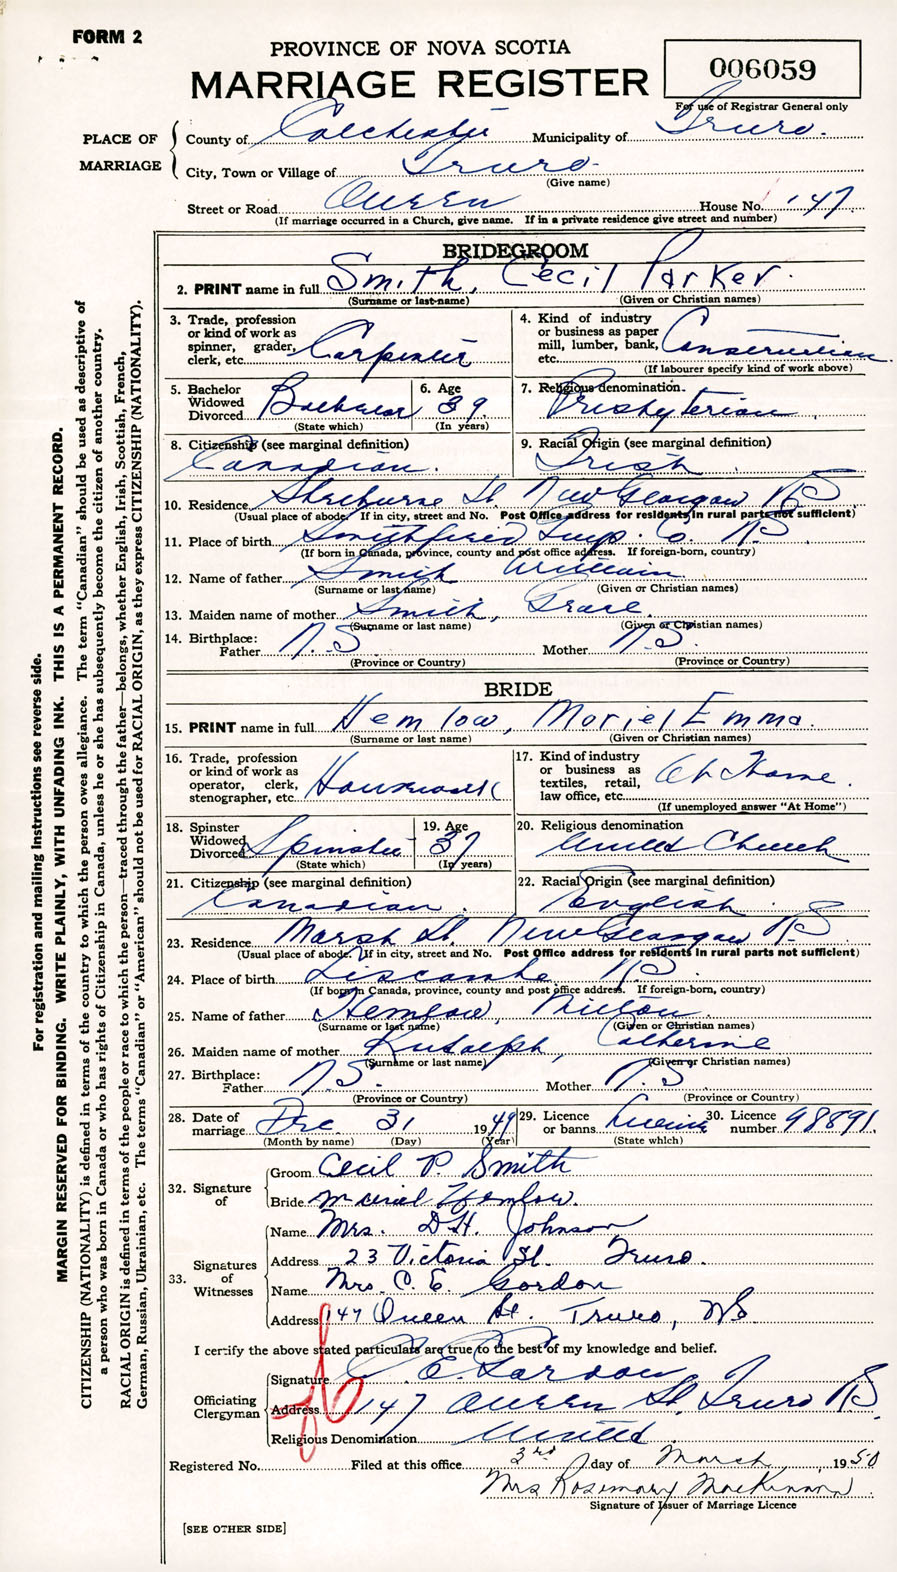 FORM 2
PROVINCE OF NOVA SCOTIA
MARRIAGE REGISTER
006059
For use of Registrar General only
PLACE OF MARRIAGE
County of Colchester Municipality of Truro.
City, Town or Village of Truro
(Give name)
Street or Road Queen House No. 147
(If marriage occurred in a Church, give name. If in a private residence give street and number)
BRIDEGROOM
2. PRINT name in full Smith, Cecil Parker.
(Surname or last name) (Given or Christian names)
3. Trade, profession or kind of work as spinner, grader, clerk, etc. Carpenter
4. Kind of industry or business as paper mill, lumber, bank, etc. Construction
(If labourer specify kind of work above)
5. Bachelor Widowed Divorced Bachelor
(State which)
6. Age 39
(In years)
7. Religious denomination. Presbyterian
8. Citizenship (see marginal definition) Canadian.
9. Racial Origin (see marginal definition) Irish
10. Residence Shelburne St. New Glasgow NS
(Usual place of abode. If in city, street and No. Post Office address for residents in rural parts not sufficient)
11. Place of birth Smithfield Guys. Co. NS
(If born in Canada, province, county and post office address. If foreign-born, country)
12. Name of father Smith William
(Surname or last name) (Given or Christian names)
13. Maiden name of mother Smith, Grace.
(Surname or last name) (Given or Christian names)
14. Birthplace: Father N.S. Mother N.S.
(Province or Country) (Province or Country)
BRIDE
15. PRINT name in full Hemlow, Moriel Emma.
(Surname or last name) (Given or Christian names)
16. Trade, profession or kind of work as operator, clerk, stenographer, etc. Housework
17. Kind of industry or business as textiles, retail, law office, etc. At Home
(If unemployed answer "At Home")
18. Spinster Widowed Divorced Spinster
(State which)
19. Age 37
(In years)
20. Religious denomination United Church
21. Citizenship (see marginal definition) Canadian.
22. Racial Origin (see marginal definition) English
23. Residence Marsh St. New Glasgow NS
(Usual place of abode. If in city, street and No. Post Office address for residents in rural parts not sufficient)
24. Place of birth Liscombe NS
(If born in Canada, province, county and post office address. If foreign-born, country)
25. Name of father Hemlow, Milton
(Surname or last name) (Given or Christian names)
26. Maiden name of mother Rudolph, Catherine
(Surname or last name) (Given or Christian names)
27. Birthplace: Father N.S. Mother N.S.
(Province or Country) (Province or Country)
28. Date of marriage Dec 31 1949
(Month by name) (Day) (Year)
29. Licence or banns Licence
(State which)
30. Licence number 98891.
32. Signature of
Groom Cecil P. Smith
Bride Muriel Hemlow.
33. Signatures of Witnesses
Name Mrs. D.H. Johnson
Address 23 Victoria St. Truro.
Name Mrs. C. E. Gordon
Address 147 Queen St. Truro, NS
I certify the above stated particulars are true to the best of my knowledge and belief.
Officiating Clergyman
Signature C. E. Gordon
Address 147 Queen St, Truro NS
Religious Denomination United
Registered No. Filed at this office 3rd day of March 1950
Mrs Rosemary MacKinnon
Signature of Issuer of Marriage Licence
[SEE OTHER SIDE]
For registration and mailing instructions see reverse side.
MARGIN RESERVED FOR BINDING. WRITE PLAINLY, WITH UNFADING INK. THIS IS A PERMANENT RECORD.
CITIZENSHIP (NATIONALITY) is defined in terms of the country to which the person owes allegiance. The term "Canadian" should be used as descriptive of
a person who was born in Canada or who has rights of Citizenship in Canada, unless he or she has subsequently become the citizen of another country.
RACIAL ORIGIN is defined in terms of the people or race to which the person—traced through the father—belongs, whether English, Irish, Scottish, French,
German, Russian, Ukrainian, etc. The terms "Canadian" or "American" should not be used for RACIAL ORIGIN, as they express CITIZENSHIP (NATIONALITY).